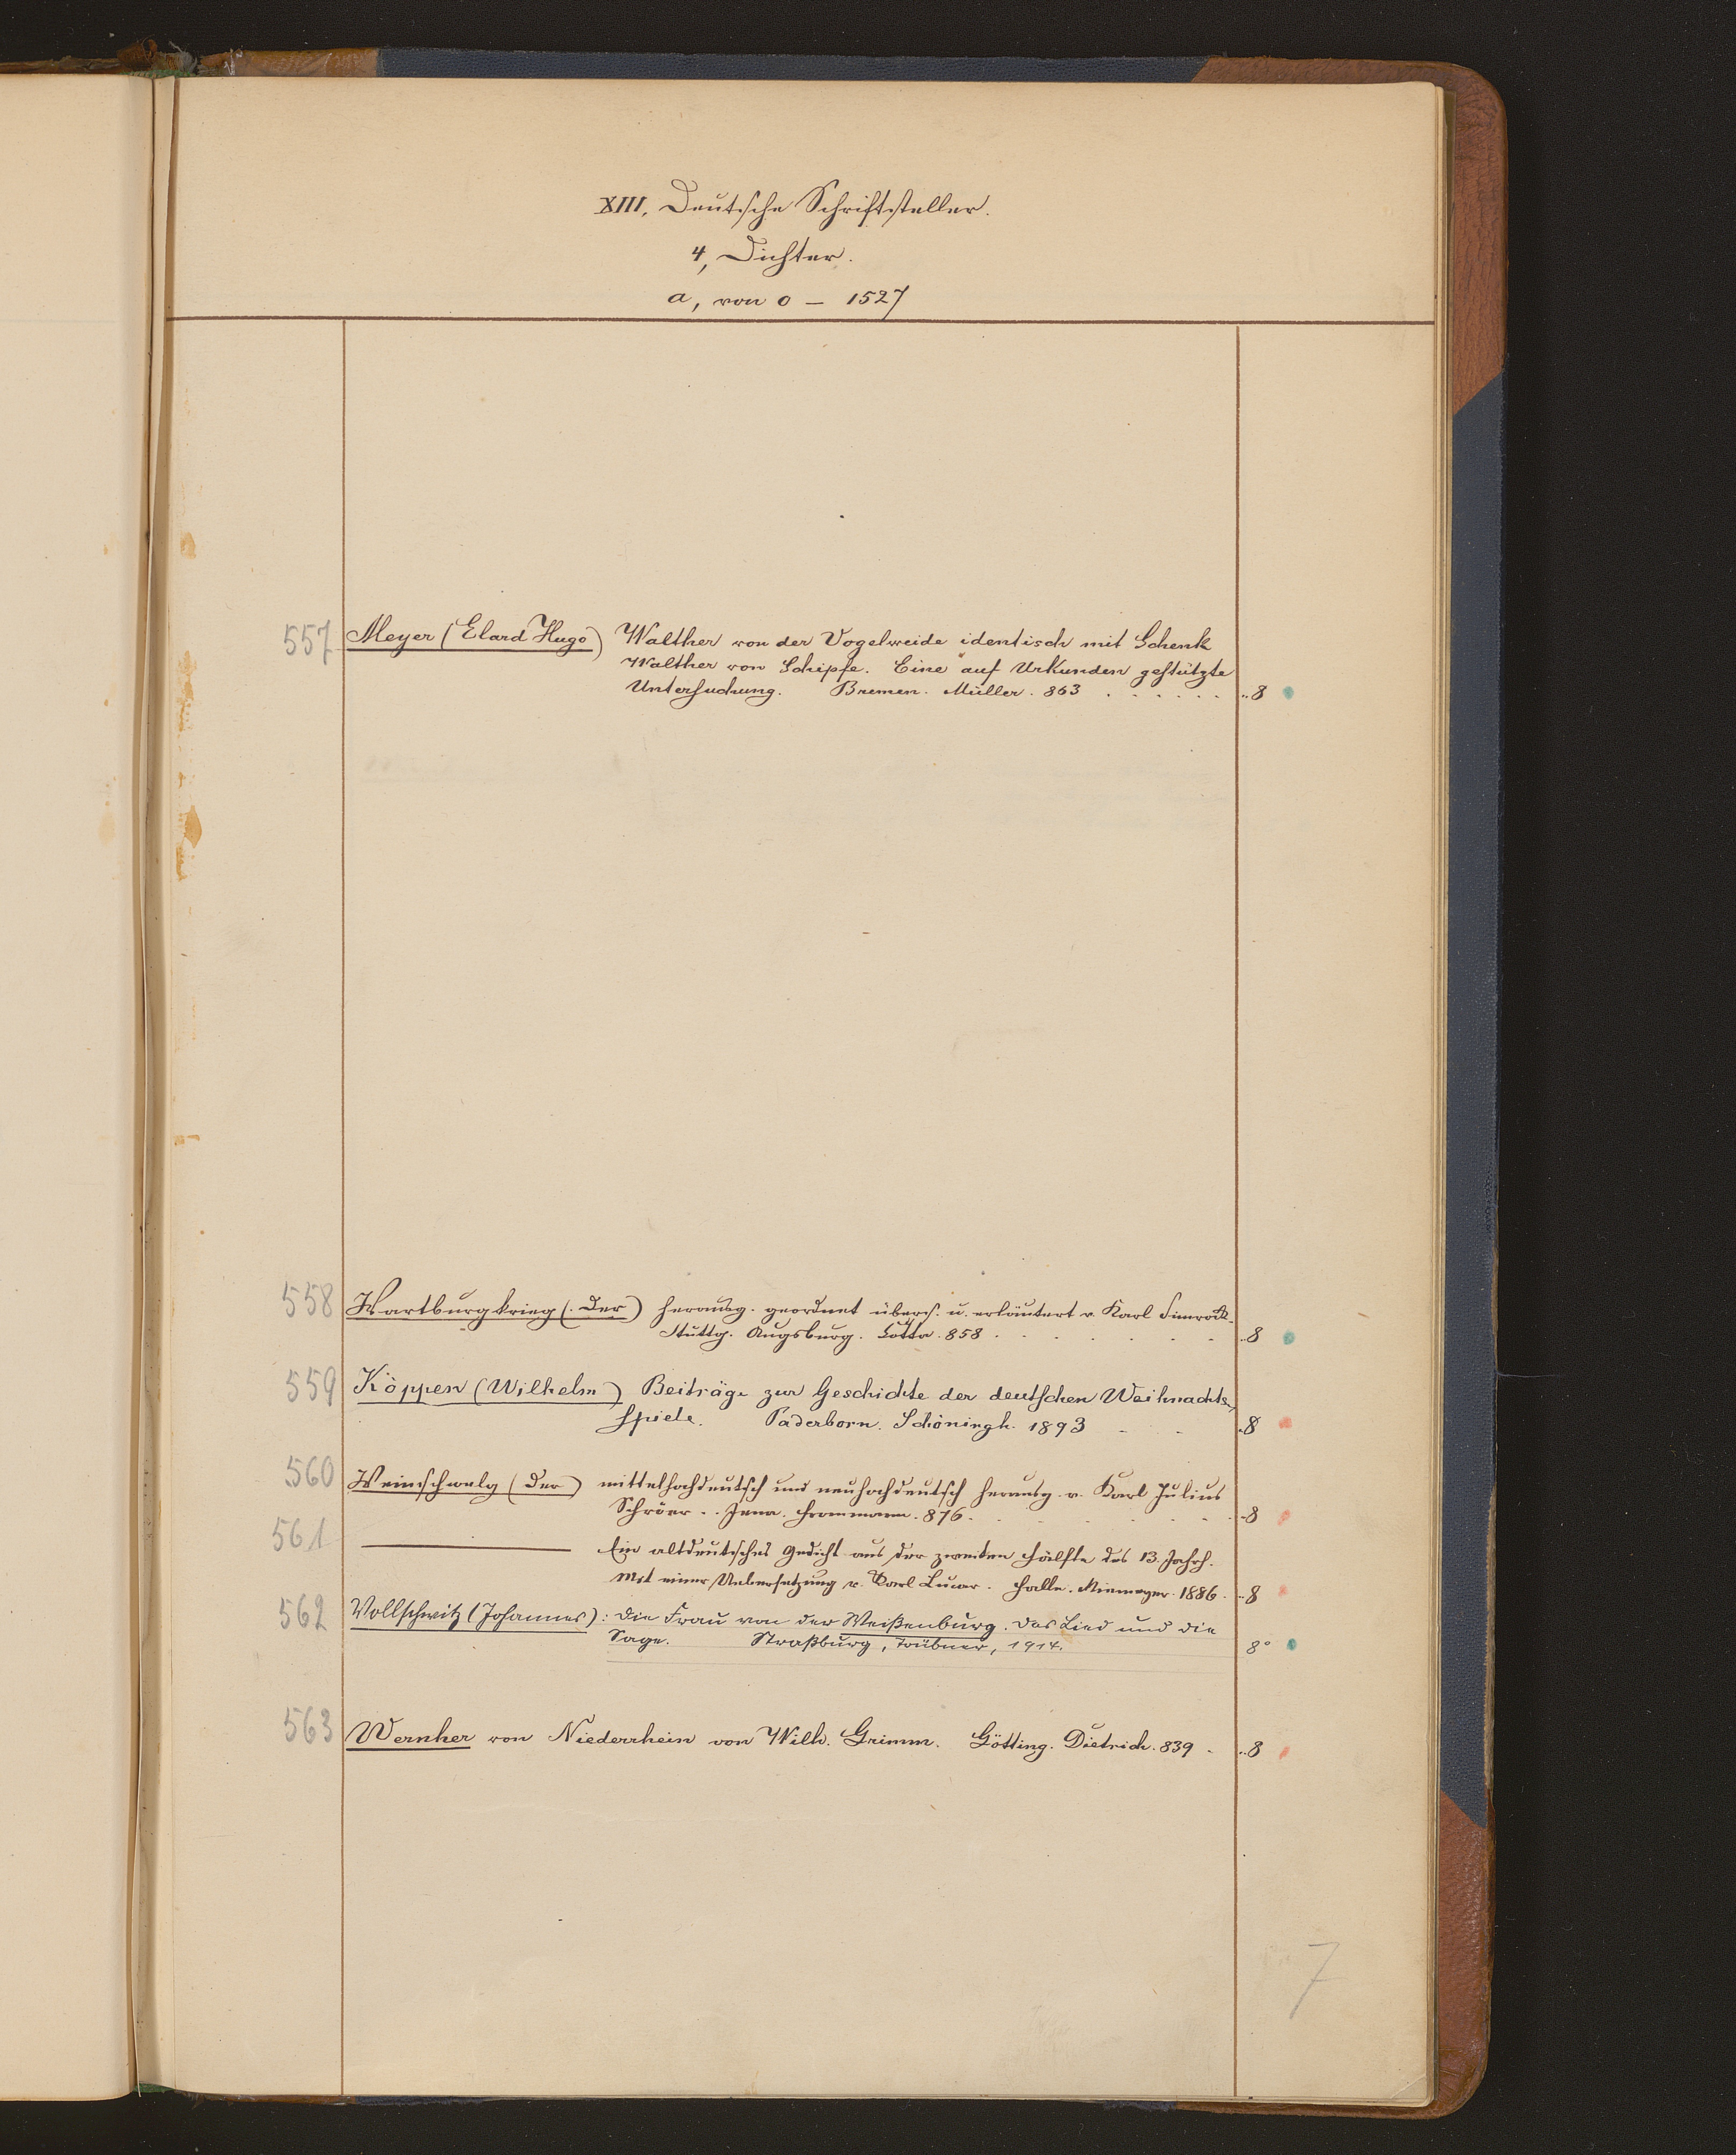 XIII. Deutsche Schriftsteller.
4, Dichter.
a, von 0 – 1527
557 Meyer (Elard Hugo) Walther von der Vogelweide identisch mit Schenk
Walther von Schipfe. Eine auf Urkunden gestützte
Untersuchung. Bremen. Müller. 863 . . . . . . ..8
558 Wartburgkrieg (Der) herausg. geordnet übers. u. erläutert v. Karl Simrock.
Stuttg. Augsburg. Cotta. 858 . . . . . ..8
559 Köppen (Wilhelm) Beiträge zur Geschichte der deutschen Weihnachts-
spiele. Paderborn. Schöningh. 1893 . . ..8
560 Weinschwelg (Der) mittelhochdeutsch und neuhochdeutsch herausg. v. Karl Julius
Schröer. . Jena. Frommann. 876. . . . . . ..8
561 ——— Ein altdeutsches Gedicht aus der zweiten Hälfte des 13. Jahrh.
Mit einer Uebersetzung v. Karl Lucae. Halle. Niemeyer. 1886. ..8
562 Vollschwitz (Johannes): Die Frau von der Weißenburg. Das Lied und die
Sage. Straßburg, Trübner, 1914. 8°
563 Wernher von Niederrhein von Wilh. Grimm. Götting. Dietrich. 839 . ..8
7